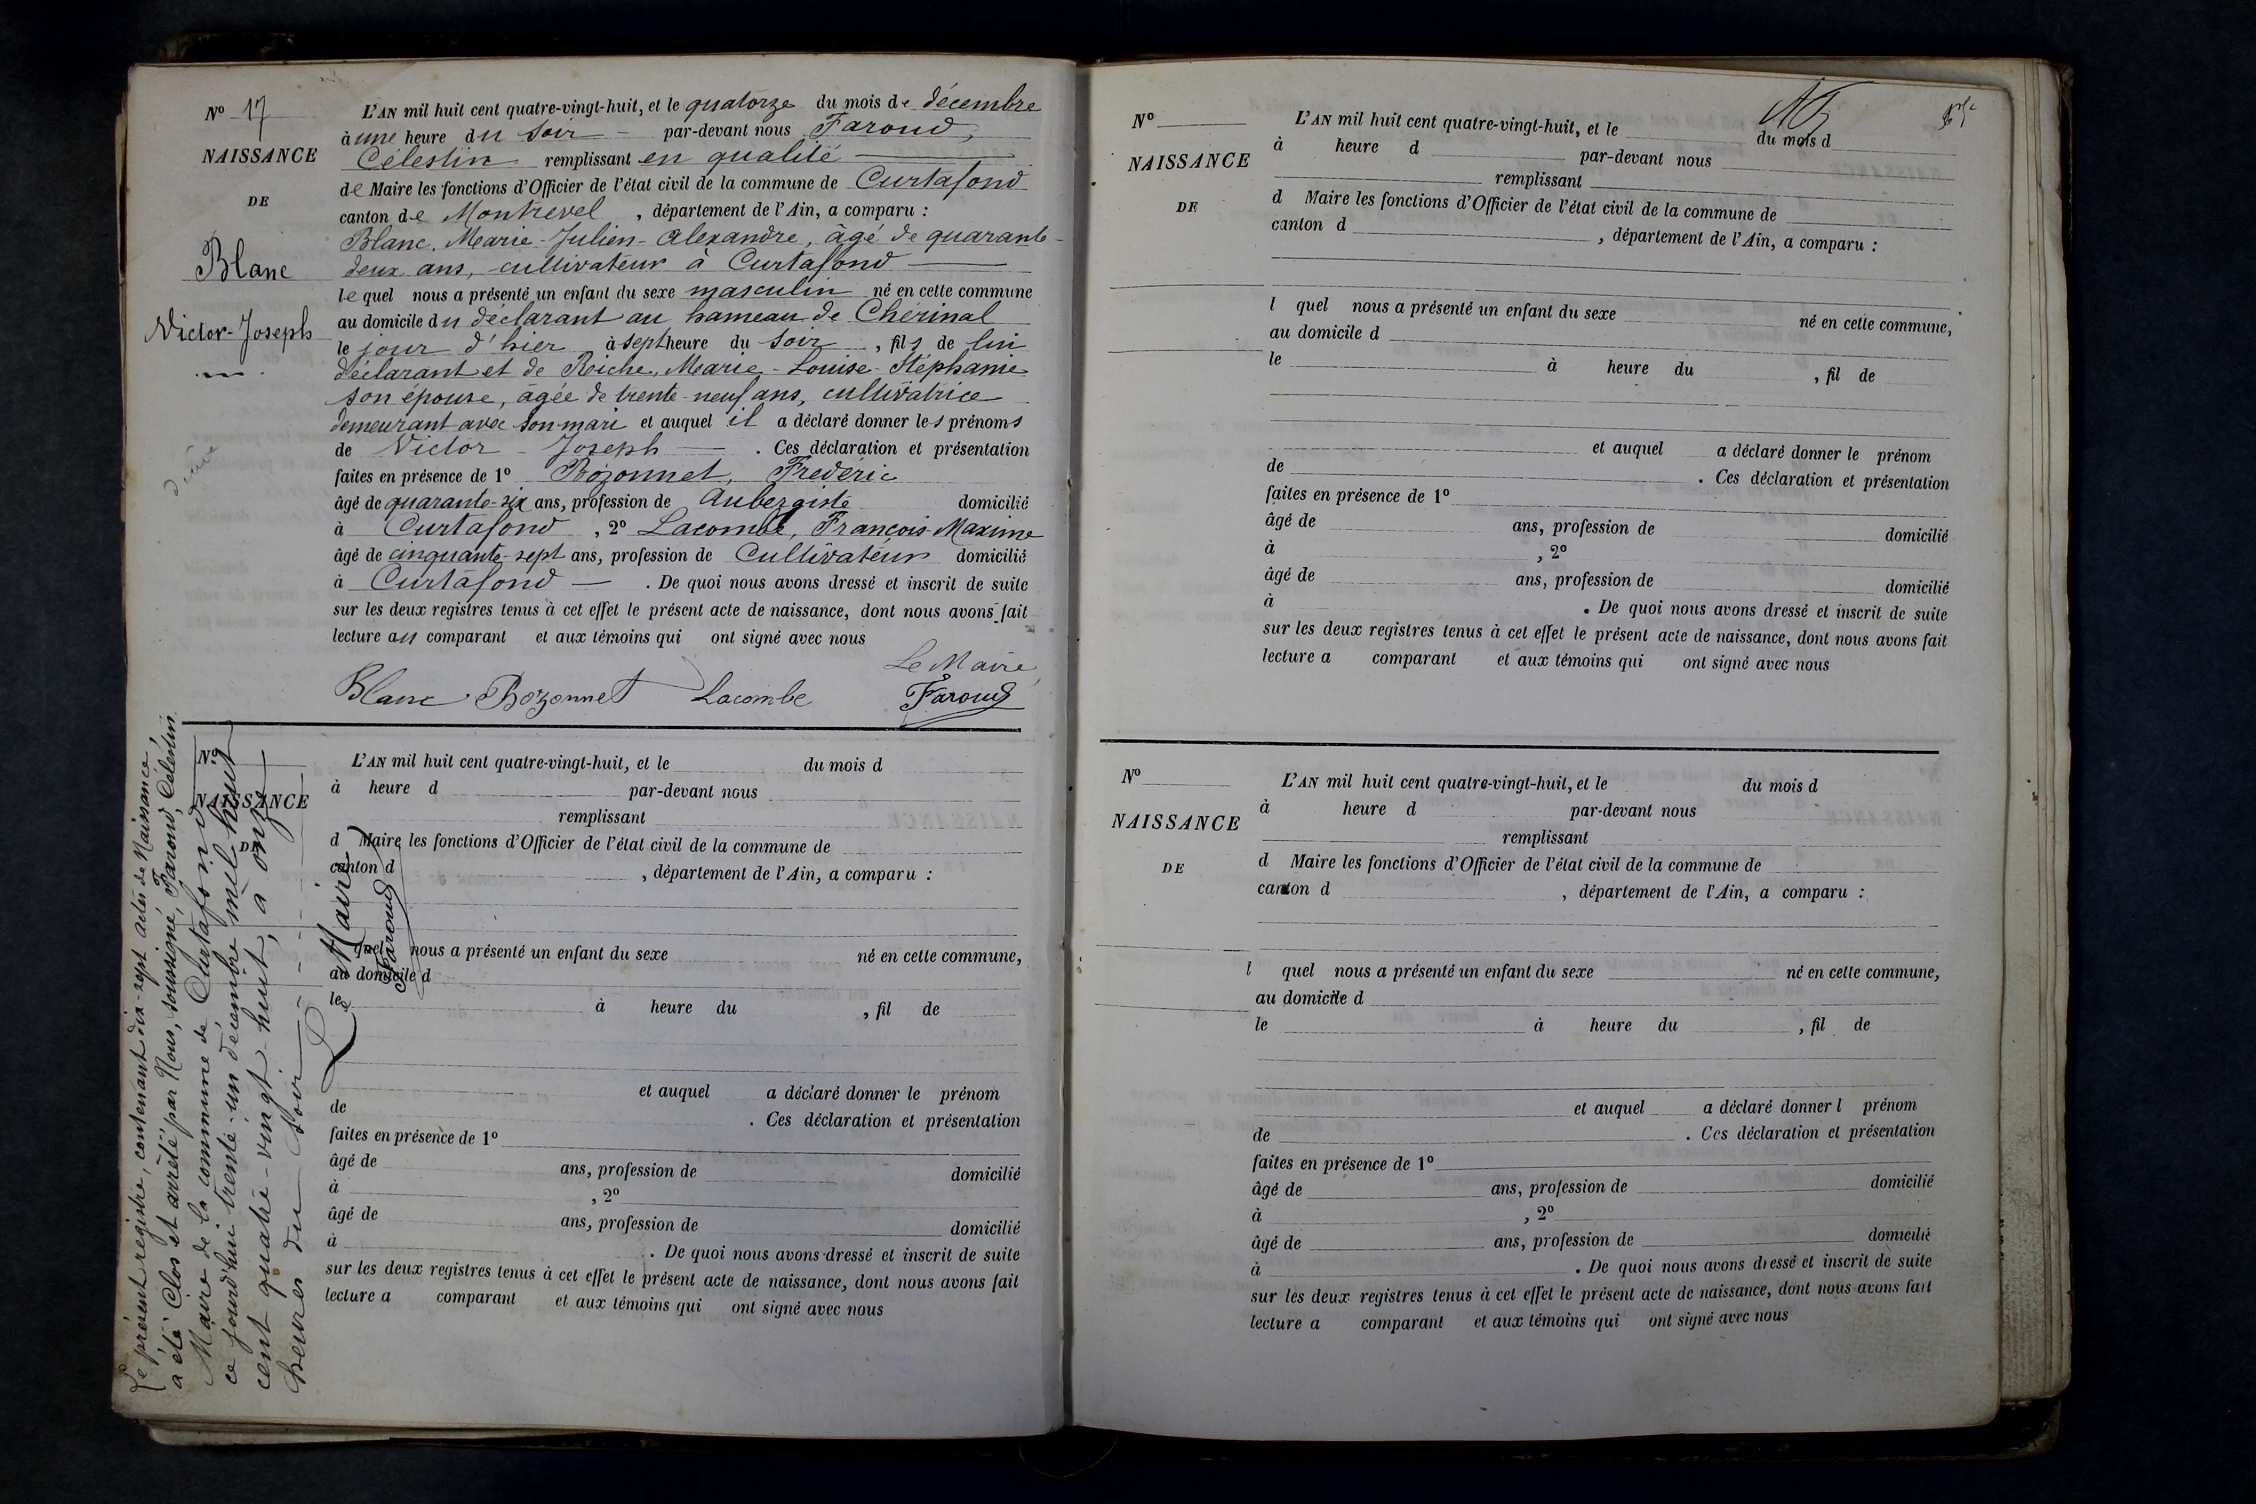 N° 17
NAISSANCE
DE
Blanc
Victor-Joseph
L'AN mil huit cent quatre-vingt-huit, et le quatorze du mois de décembre
à une heure du soir - par-devant nous Faroud,
Célestin remplissant en qualité
de Maire les fonctions d'Officier de l'état civil de la commune de Curtafond
canton de Montrevel, département de l'Ain, a comparu :
Blanc, Marie-Julien-Alexandre, âgé de quarante-
deux ans, cultivateur à Curtafond
lequel nous a présenté un enfant du sexe masculin né en cette commune
au domicile du déclarant au hameau de Chérinal
le jour d'hier à sept heure du soir, fils de lui
déclarant et de Riche, Marie-Louise-Stéphanie
son épouse, âgée de trente-neuf ans, cultivatrice
demeurant avec son mari et auquel il a déclaré donner les prénoms
de Victor - Joseph - . Ces déclaration et présentation
faites en présence de 1° Bozonnet, Frederic
âgé de quarante-six ans, profession de Aubergiste domicilié
à Curtafond, 2° Lacombe, François-Maxime
âgé de cinquante-sept ans, profession de Cultivateur domicilié
à Curtafond - . De quoi nous avons dressé et inscrit de suite
sur les deux registres tenus à cet effet le présent acte de naissance, dont nous avons fait
lecture au comparant et aux témoins qui ont signé avec nous
Le Maire,
Blanc Bozonnet Lacombe Faroud
Le présent registre, contenant dix-sept actes de Naissance,
a été Clos et arrêté par Nous, soussigné, Faroud, Célestin
Maire de la commune de Curtafond
ce jourd'hui trente-un décembre mil huit
cent quatre-vingt-huit, à onze
heures du soir
Le Maire
Faroud
N°
NAISSANCE
DE
L'AN mil huit cent quatre-vingt-huit, et le du mois d
à heure d par-devant nous
remplissant
d Maire les fonctions d'Officier de l'état civil de la commune de
canton d , département de l'Ain, a comparu :
quel nous a présenté un enfant du sexe né en cette commune,
au domicile d
le à heure du , fil de
et auquel a déclaré donner le prénom
de . Ces déclaration et présentation
faites en présence de 1°
âgé de ans, profession de domicilié
à , 2°
âgé de ans, profession de domicilié
à . De quoi nous avons dressé et inscrit de suite
sur les deux registres tenus à cet effet le présent acte de naissance, dont nous avons fait
lecture a comparant et aux témoins qui ont signé avec nous
N°
NAISSANCE
DE
L'AN mil huit cent quatre-vingt-huit, et le du mois d
à heure d par-devant nous
remplissant
d Maire les fonctions d'Officier de l'état civil de la commune de
canton d , département de l'Ain, a comparu :
l quel nous a présenté un enfant du sexe né en cette commune,
au domicile d
le à heure du , fil de
et auquel a déclaré donner le prénom
de . Ces déclaration et présentation
faites en présence de 1°
âgé de ans, profession de domicilié
à , 2°
âgé de ans, profession de domicilié
à . De quoi nous avons dressé et inscrit de suite
sur les deux registres tenus à cet effet le présent acte de naissance, dont nous avons fait
lecture a comparant et aux témoins qui ont signé avec nous
N°
NAISSANCE
DE
L'AN mil huit cent quatre-vingt-huit, et le du mois d
à heure d par-devant nous
remplissant
d Maire les fonctions d'Officier de l'état civil de la commune de
canton d , département de l'Ain, a comparu :
l quel nous a présenté un enfant du sexe né en cette commune,
au domicile d
le à heure du , fil de
et auquel a déclaré donner l prénom
de . Ces déclaration et présentation
faites en présence de 1°
âgé de ans, profession de domicilié
à , 2°
âgé de ans, profession de domicilié
à . De quoi nous avons dressé et inscrit de suite
sur les deux registres tenus à cet effet le présent acte de naissance, dont nous avons fait
lecture a comparant et aux témoins qui ont signé avec nous